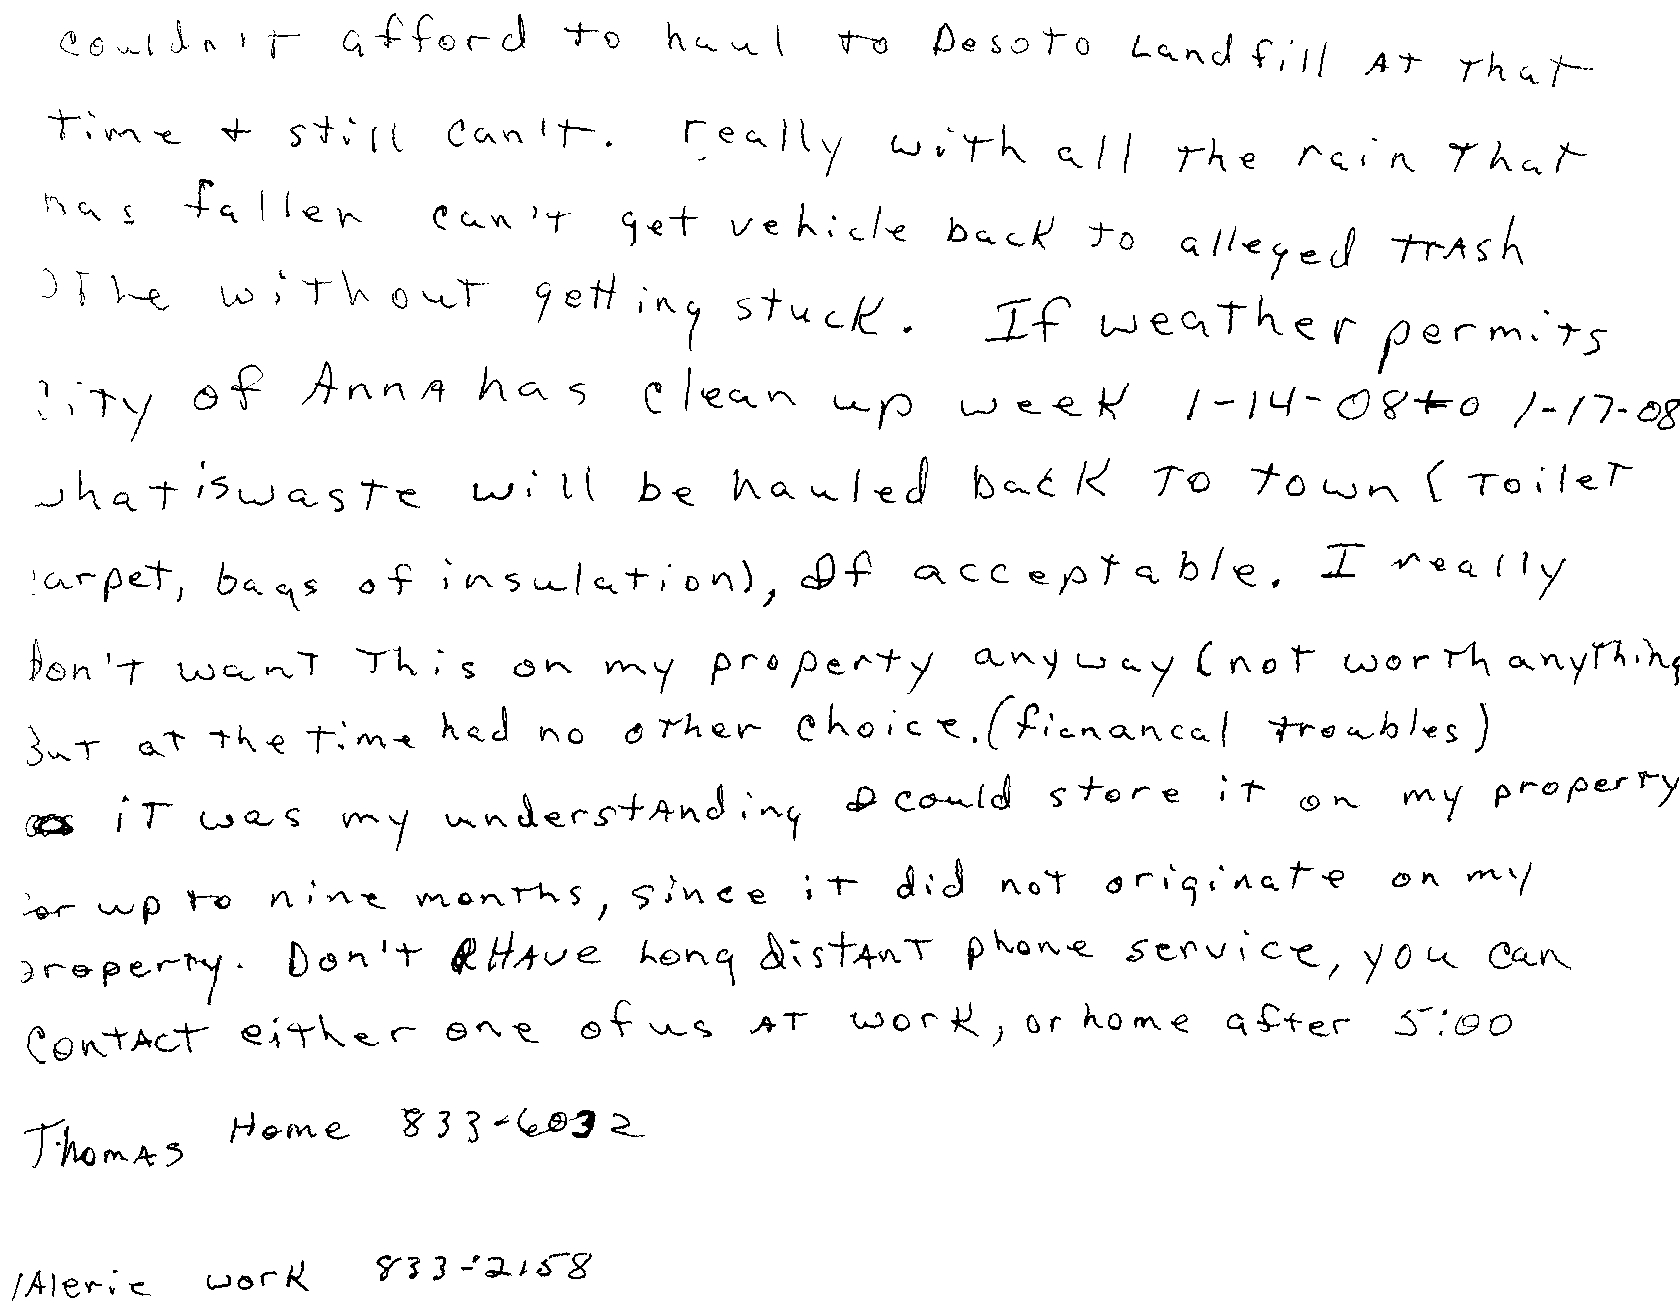 couldn't afford to haul to Desoto Landfill AT That
Time + still can't. really with all The rain That
has fallen can't get vehicle back to alleged TrAsh
without getting stuck. If weather permits
City of AnnA has clean up week 1-14-08 to 1-17-08
what is waste will be hauled back To town (Toilet
carpet, bags of insulation), If acceptable. I really
Don't want This on my property anyway (not worth anything
But at the time had no other choice. (fienancal troubles)
iT was my understAnding I could store it on my property
for up to nine months, since it did not originate on my
property. Don't HAve Long distAnT phone service, you can
ContAct either one of us AT work, or home after 5:00
ThomAs Home 833-6032
VAlerie work 833-2158